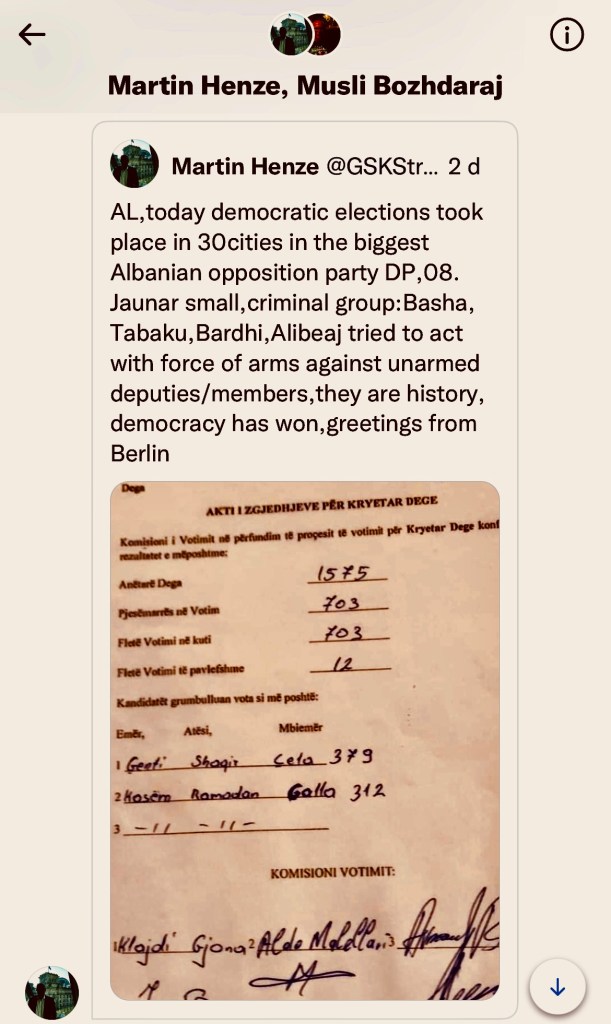 Martin Henze, Musli Bozhdaraj
Martin Henze @GSKStr... 2 d
AL,today democratic elections took
place in 30cities in the biggest
Albanian opposition party DP,08.
Jaunar small,criminal group:Basha,
Tabaku,Bardhi,Alibeaj tried to act
with force of arms against unarmed
deputies/members,they are history,
democracy has won,greetings from
Berlin
Dega
AKTI I ZGJEDHJEVE PËR KRYETAR DEGE
Komisioni i Votimit në përfundim të proçesit të votimit për Kryetar Dege konf
rezultatet e mëposhtme:
Anëtarë Dega 1575
Pjesëmarrës në Votim 703
Fletë Votimi në kuti 703
Fletë Votimi të pavlefshme 12
Kandidatët grumbulluan vota si më poshtë:
Emër, Atësi, Mbiemër
1 Shaqir Cela 379
2 Ramadan Galla 312
3 -11 -11-
KOMISIONI VOTIMIT:
1 Klajdi Gjona 2 Aldo 3